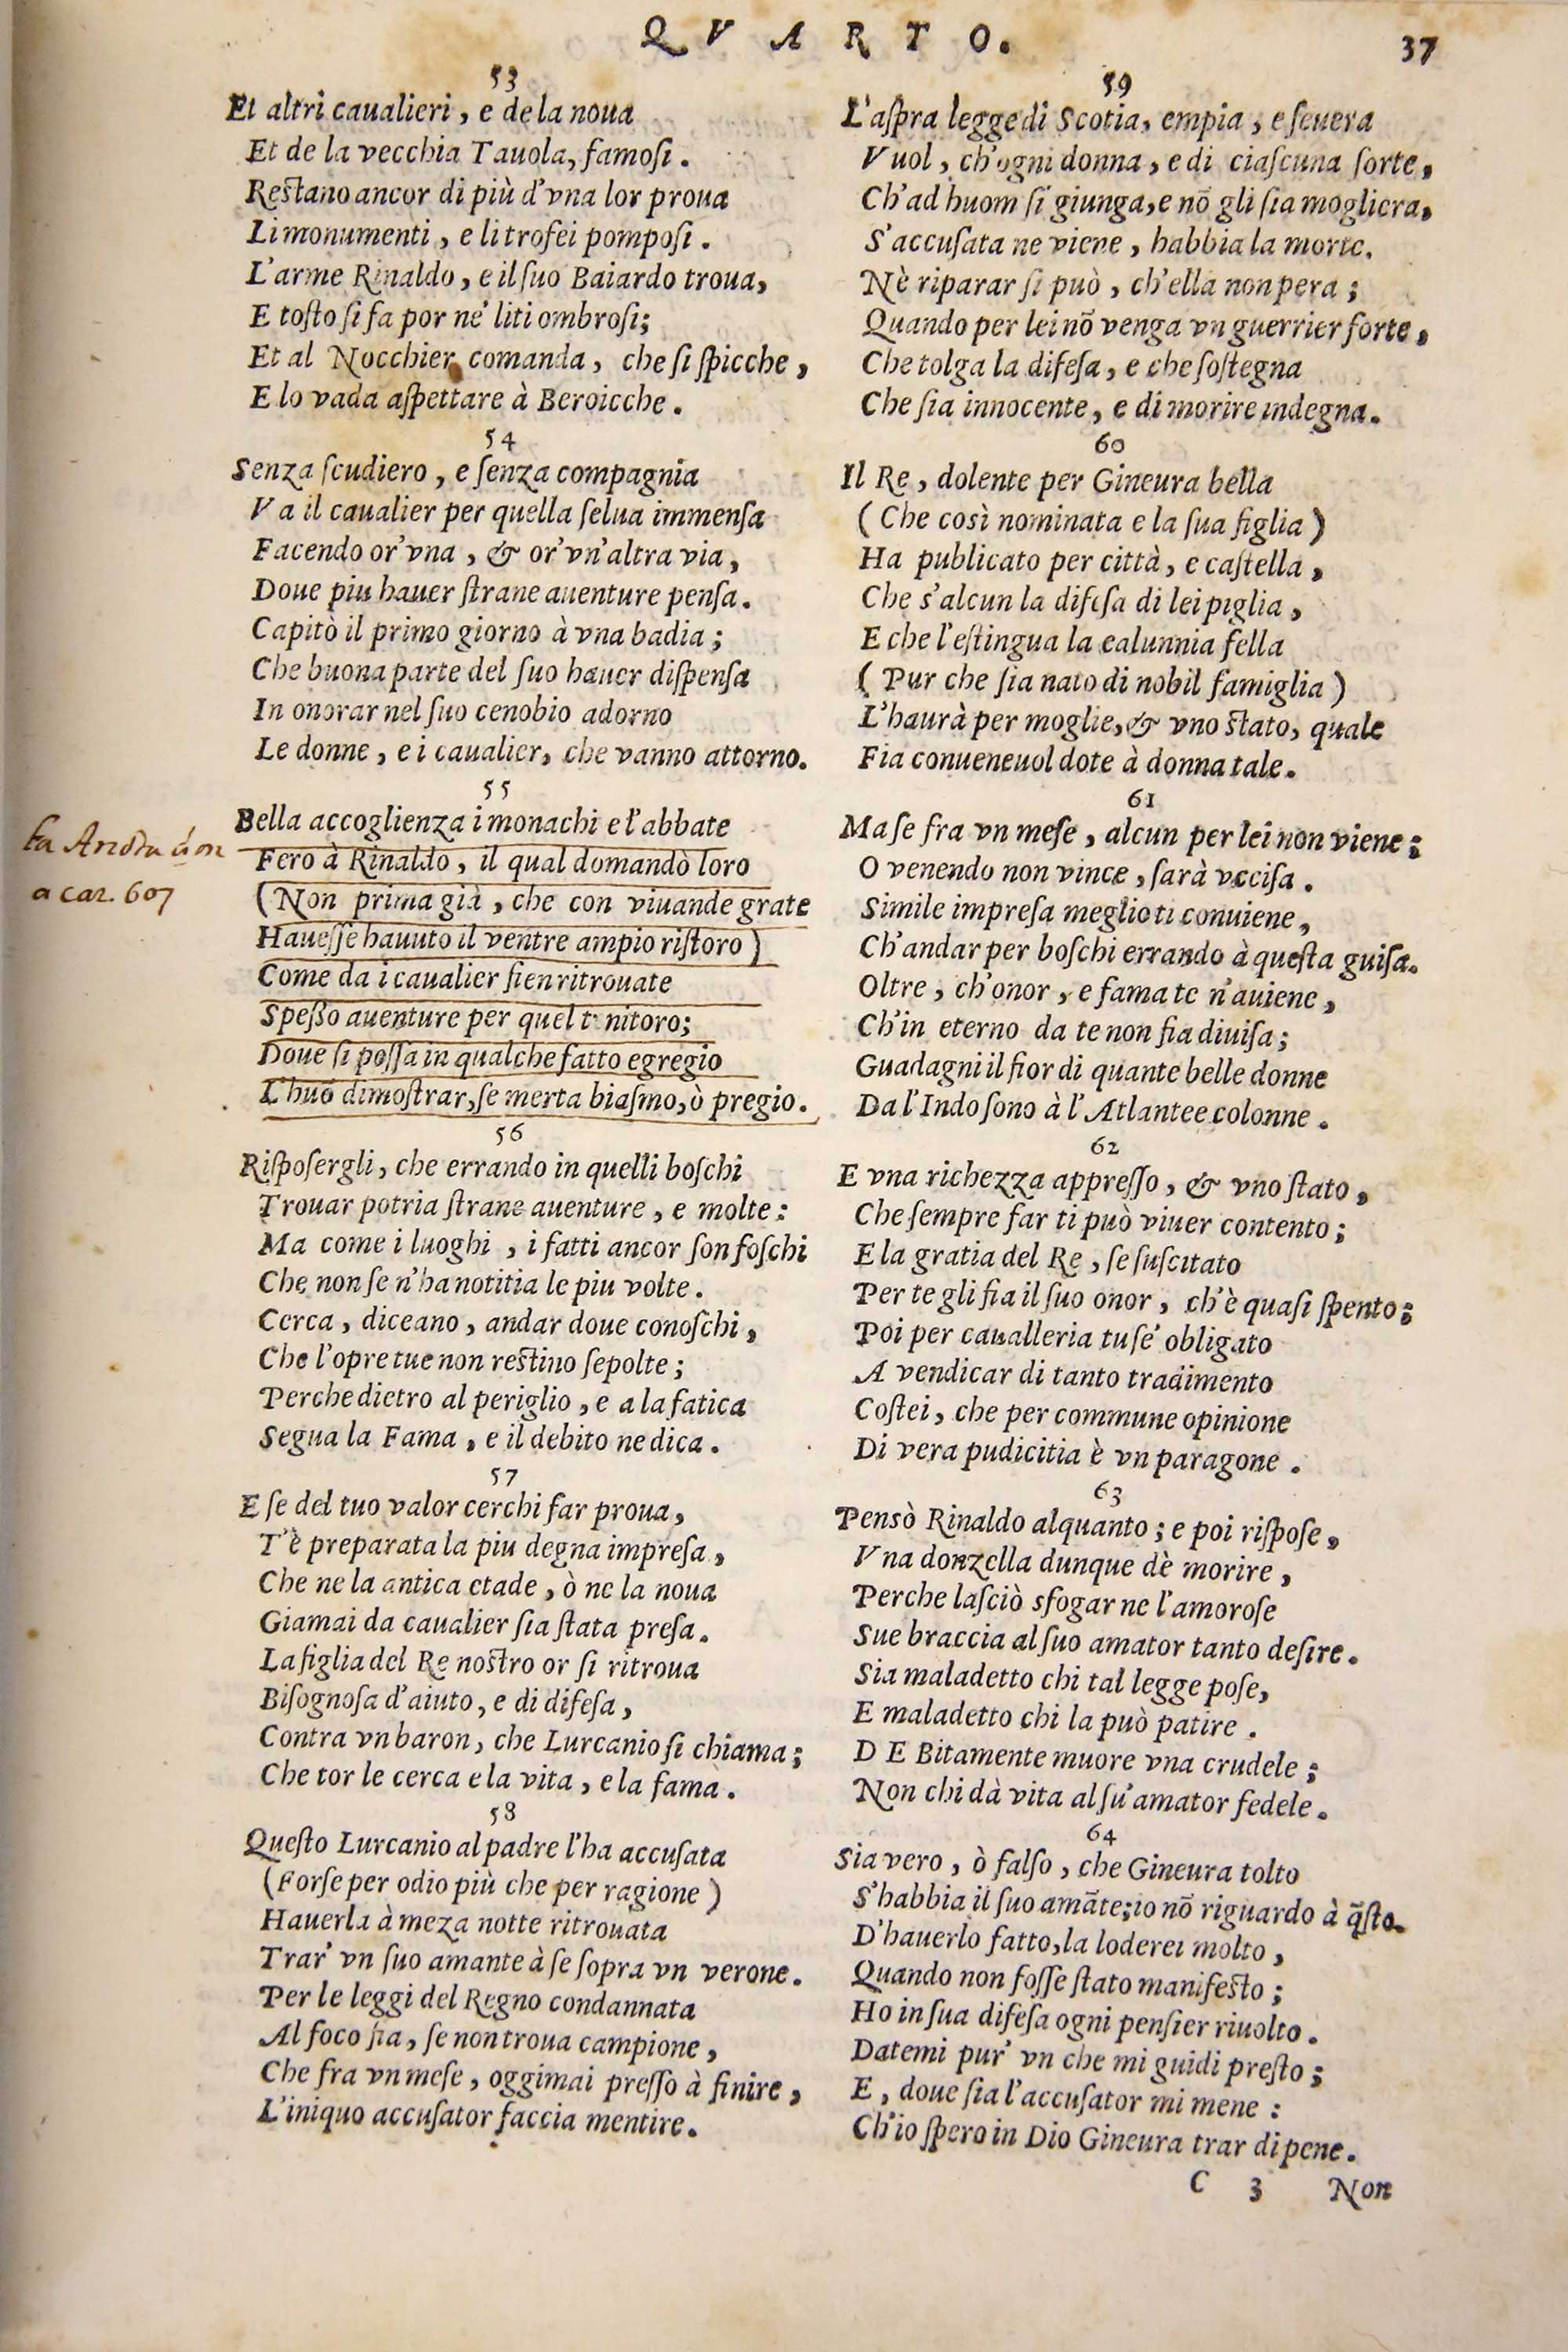 QVARTO.
37
53
Et altri caualieri, e de la noua
Et de la vecchia Tauola, famoſi.
Reſtano ancor di più d'vna lor proua
Li monumenti, e li trofei pompoſi.
L'arme Rinaldo, e il ſuo Baiardo troua,
E toſto ſi fa por ne' liti ombroſi;
Et al Nocchier comanda, che ſi ſpicche,
E lo vada aſpettare à Beroicche.
54
Senza ſcudiero, e ſenza compagnia
Va il caualier per quella ſelua immenſa
Facendo or'vna, & or'vn'altra via,
Doue piu hauer ſtrane auenture penſa.
Capitò il primo giorno à vna badia;
Che buona parte del ſuo hauer diſpenſa
In onorar nel ſuo cenobio adorno
Le donne, e i caualier, che vanno attorno.
55
Bella accoglienza i monachi e l'abbate
Fero à Rinaldo, il qual domandò loro
(Non prima già, che con viuande grate
Haueſſe hauuto il ventre ampio riſtoro)
Come da i caualier ſien ritrouate
Speſſo auenture per quel t nitoro;
Doue ſi poſſa in qualche fatto egregio
L'huō dimoſtrar, ſe merta biaſmo, ò pregio.
a car. 607
56
Riſpoſergli, che errando in quelli boſchi
Trouar potria ſtrane auenture, e molte:
Ma come i luoghi, i fatti ancor ſon foſchi
Che non ſe n'ha notitia le piu volte.
Cerca, diceano, andar doue conoſchi,
Che l'opre tue non reſtino ſepolte;
Perche dietro al periglio, e a la fatica
Segua la Fama, e il debito ne dica.
57
E ſe del tuo valor cerchi far proua,
T'è preparata la piu degna impreſa,
Che ne la antica etade, ò ne la noua
Giamai da caualier ſia ſtata preſa.
La figlia del Re noſtro or ſi ritroua
Biſognoſa d'aiuto, e di difeſa,
Contra vn baron, che Lurcanio ſi chiama;
Che tor le cerca e la vita, e la fama.
58
Queſto Lurcanio al padre l'ha accuſata
(Forſe per odio più che per ragione)
Hauerla à meza notte ritrouata
Trar' vn ſuo amante à ſe ſopra vn verone.
Per le leggi del Regno condannata
Al foco ſia, ſe non troua campione,
Che fra vn meſe, oggimai preſſo à finire,
L'iniquo accuſator faccia mentire.
59
L'aſpra legge di Scotia, empia, e ſeuera
Vuol, ch'ogni donna, e di ciaſcuna ſorte,
Ch'ad huom ſi giunga, e nō gli ſia mogliera,
S'accuſata ne viene, habbia la morte.
Nè riparar ſi può, ch'ella non pera;
Quando per lei nō venga vn guerrier forte,
Che tolga la difeſa, e che ſoſtegna
Che ſia innocente, e di morire indegna.
60
Il Re, dolente per Gineura bella
(Che così nominata e la ſua figlia)
Ha publicato per città, e caſtella,
Che s'alcun la difeſa di lei piglia,
E che l'eſtingua la calunnia fella
(Pur che ſia nato di nobil famiglia)
L'haurà per moglie, & vno ſtato, quale
Fia conueneuol dote à donna tale.
61
Ma ſe fra vn meſe, alcun per lei non viene;
O venendo non vince, ſarà vcciſa.
Simile impreſa meglio ti conuiene,
Ch'andar per boſchi errando à queſta guiſa.
Oltre, ch'onor, e fama te n'auiene,
Ch'in eterno da te non fia diuiſa;
Guadagni il fior di quante belle donne
Da l'Indo ſono à l'Atlantee colonne.
62
E vna richezza appreſſo, & vno ſtato,
Che ſempre far ti può viuer contento;
E la gratia del Re, ſe ſuſcitato
Per te gli fia il ſuo onor, ch'è quaſi ſpento;
Poi per caualleria tu ſe' obligato
A vendicar di tanto tradimento
Coſtei, che per commune opinione
Di vera pudicitia è vn paragone.
63
Pensò Rinaldo alquanto; e poi riſpoſe,
Vna donzella dunque dè morire,
Perche laſciò sfogar ne l'amoroſe
Sue braccia al ſuo amator tanto deſire.
Sia maladetto chi tal legge poſe,
E maladetto chi la può patire.
DEBitamente muore vna crudele;
Non chi dà vita al ſu'amator fedele.
64
Sia vero, ò falſo, che Gineura tolto
S'habbia il ſuo amāte; io nō riguardo à q̄ſto.
D'hauerlo fatto, la loderei molto,
Quando non foſſe ſtato manifeſto;
Ho in ſua difeſa ogni penſier riuolto.
Datemi pur' vn che mi guidi preſto;
E, doue ſia l'accuſator mi mene:
Ch'io ſpero in Dio Gineura trar di pene.
C 3 Non